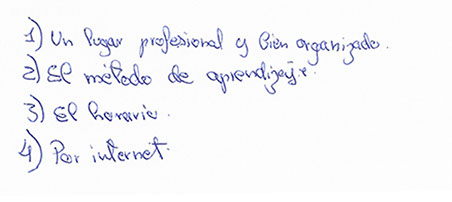 1) Un lugar profesional y bien organizado.
2) El método de aprendizaje.
3) El horario.
4) Por internet.